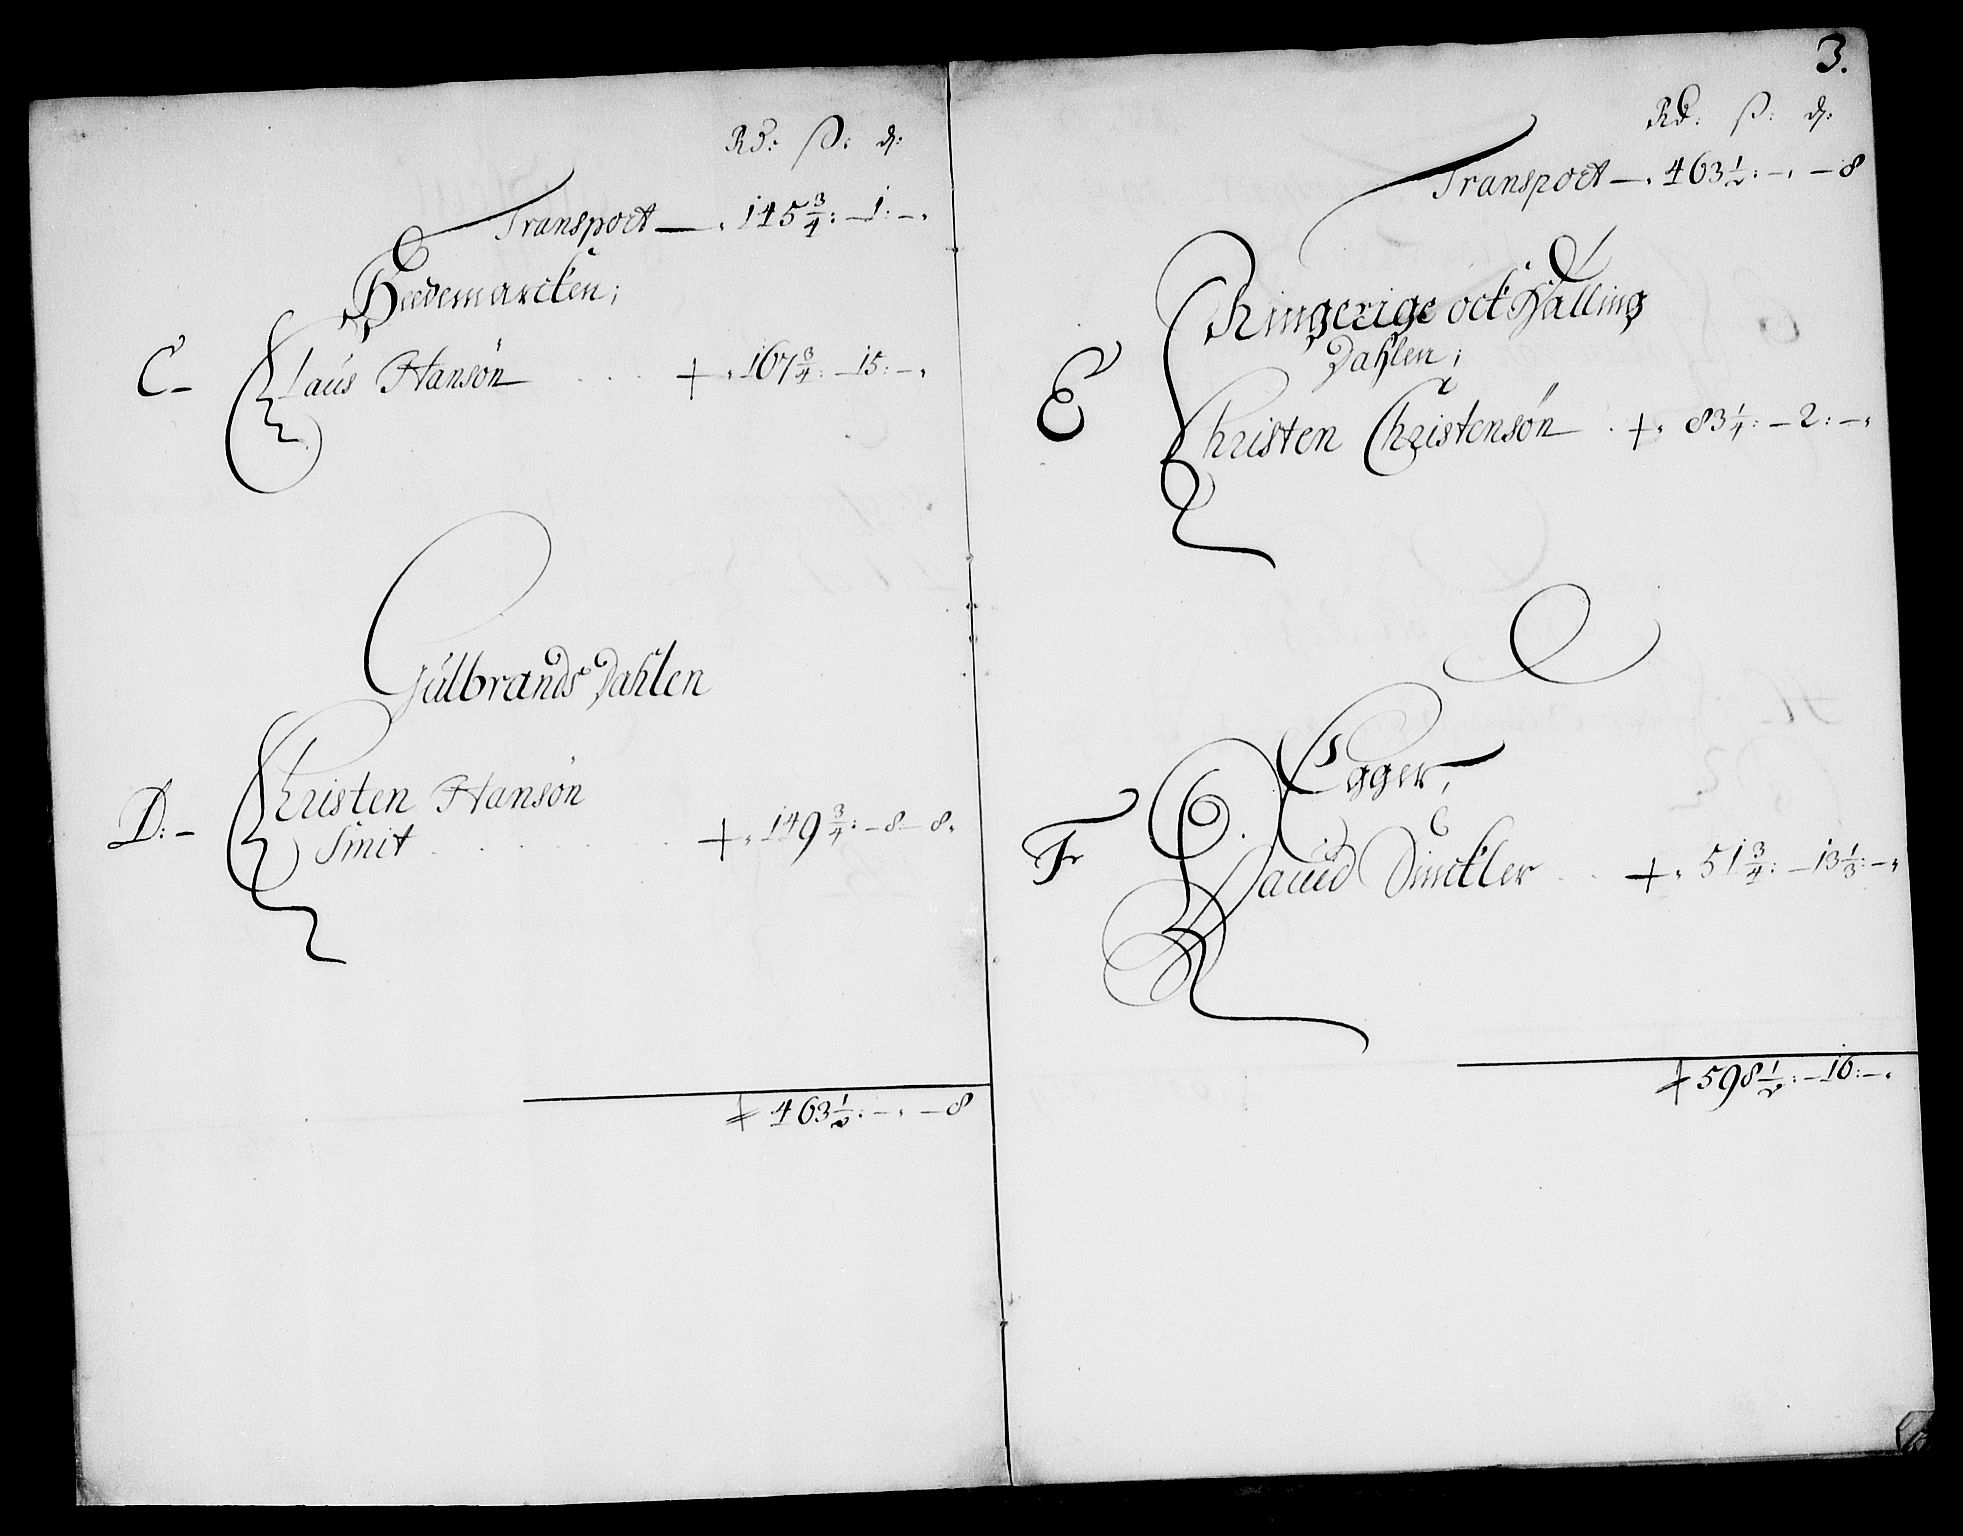 Rd: ß: d:
Transport —. 145 3/4: — 1: —.
Hedemarcken;
C — Laus Hansøn . . . + . 167 3/4: — 15: —.
Gulbrands Dahlen
Christen Hansøn
D: — Smit . . . . . . + . 149 3/4: — 8 — 8.
463 1/2: — . — 8
3.
Rd: ß: d:
Transport —. 463 1/2: — . — 8
Ringerige och Halling
Dahlen;
E Christen Christensøn . + . 83 1/4: — 2: —.
Egger,
F Dauid Sinckler . . + . 51 3/4: — 13 1/3: —.
598 1/2: — 16: —.